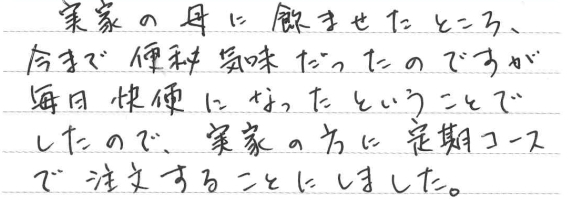 実家の母に飲ませたところ、
今まで便秘気味だったのですが
毎日快便になったということで
したので、実家の方に定期コース
で注文することにしました。